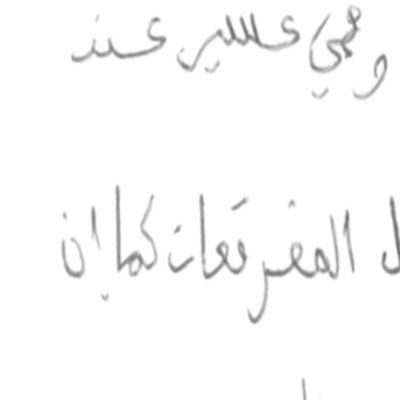 وهي عسير عند
ل المفرقعات كما إن